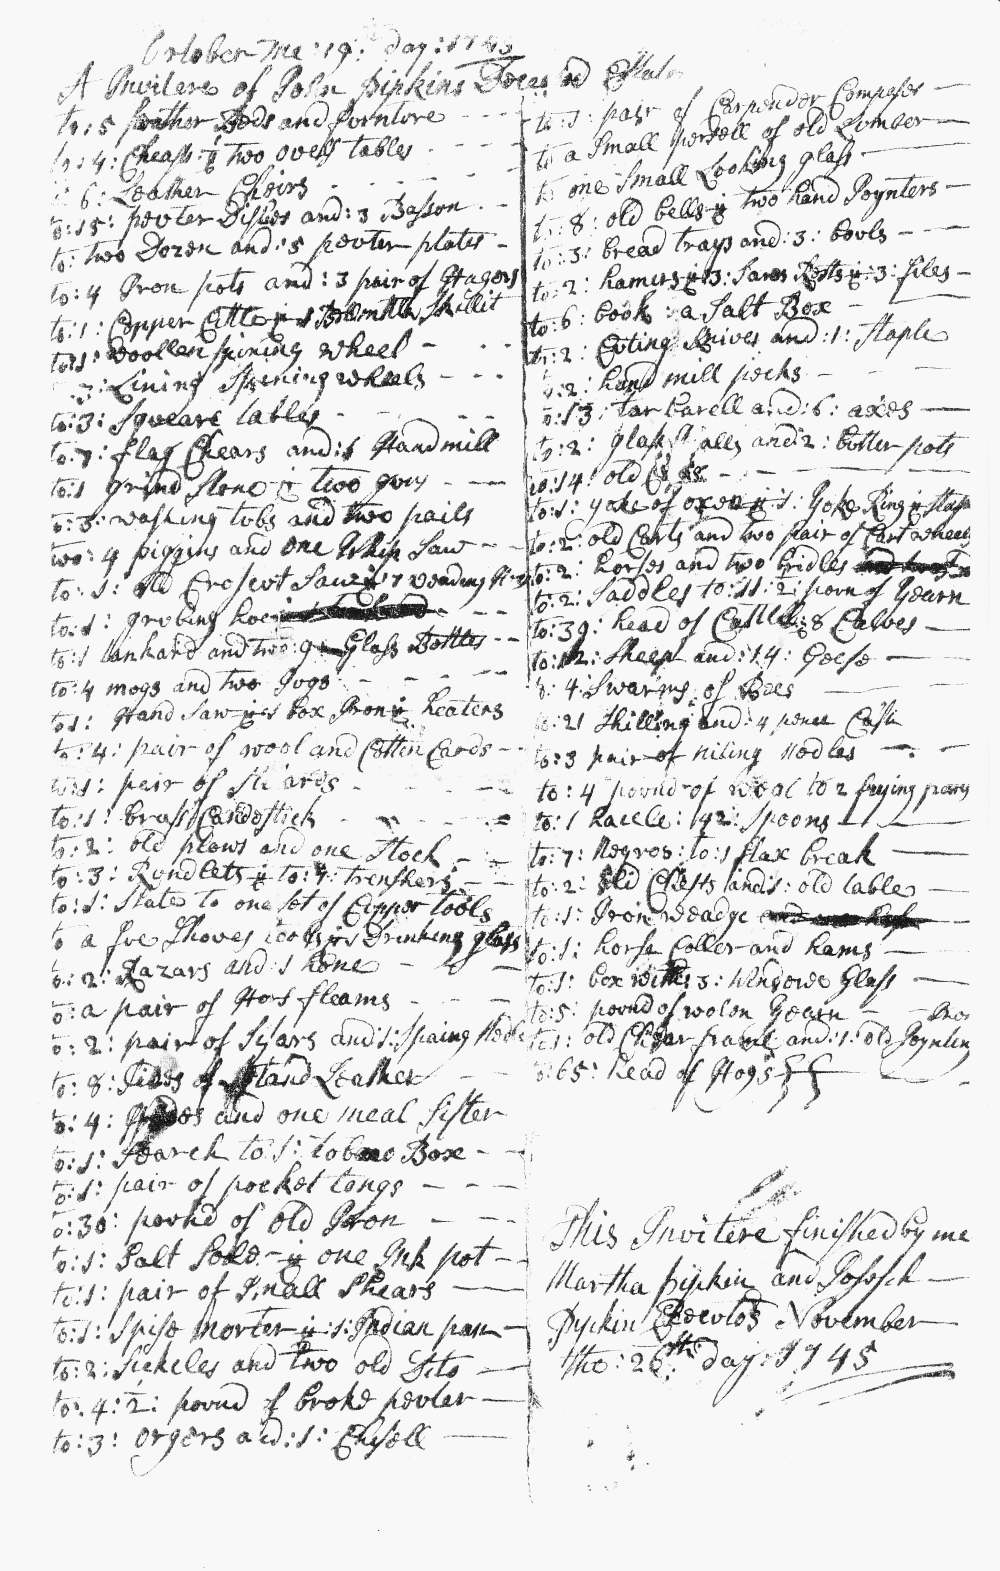 October the : 19 : day : 1745
A Invitere of John Pipkins Deceased Estate
to : 5 feather Beds and forntore
to : 4 : Cheasts : & two overs tables
6 : Leather Cheirs
to : 15 : pewter Dishes and : 3 Basson
to : two Dozen and : 5 pewter plates
to : 4 Iron pots and : 3 pair of Hagers
to : 1 : Copper Cittle & 1 Skillit
to : 1 : woollen spining wheel
3 : Lining Spening wheels
to : 3 : Squeare tables
to : 7 : flag Chears and : 1 Handmill
to : 1 grind Stone & two guns
to : 3 : washing tubs and two pails
two : 4 piggins and one Whip Saw
to : 1 : old Crosscut Saw & 7 weading Hoes
to : 1 : grubing hoe
to : 1 tankard and two : 9 Glass Bottles
to : 4 mogs and two Jugs
to 1 : Hand Saw & 1 box Iron & heaters
to : 4 : pair of wool and Cottin Cards
to : 1 : pair of Sheards
to : 1 : brass Candestick
to : 2 : old plows and one Stock
to : 3 : Rundlets & to : 4 : trenshers
to : 1 : Slate to one Set of Cupper tools
to a fue Shoves tools & 1 Drinking glass
to : 2 : Razars and : 1 hone
to : a pair of Hors fleams
to : 2 : pair of Silars and : 1 : Spaing Nedle
to : 8 : Sides of Leather
to : 4 : and one meal Sifter
to : 1 : Search to : 1 : tobaco Box
to : 1 : pair of pocket tongs
to : 30 : pound of old Iron
to : 1 : Salt Seler & one Ink pot
to : 1 : pair of Small Shears
to : 1 : Spise morter & : 1 : Indian pan
to : 2 : Sickeles and two old Sits
to : 4 : 2 : pound of broke pewter
to : 3 : orgers and : 1 : Chisell
to : 1 : pair of Carpender Compases
to a Small persell of old Lumber
to one Small Looking glass
to : 8 : old bells & two hand Poynters
to : 3 : bread trays and : 3 : bowls
to : 2 : hamers & 3 : Saws Rests & : 3 : files
to : 6 : book : a Salt Box
to : 2 : Cuting Knives and : 1 : Staple
to : 2 : hand mill pecks
to : 13 : tar barell and : 6 : axes
to : 2 : glass and 2 : butter pots
to : 14 : old
to : 1 : yoke of oxen & 1 : Yoke Ring & Staple
to : 2 : old Carts and two pair of Cart wheels
to : 2 : horses and two bridles
to : 2 : Saddles to : 11 : 2 : poun of Yearn
to : 39 : head of Cattle : 8 Calves
to : 12 : Sheep and : 14 : Geese
: 4 : Swarms of Bees
21 Shilling and : 4 pence Cash
to : 3 pair of niting nedles
to : 4 pound of wool to 2 frying pans
to : 1 hackle : 142 : Spoons
to : 7 : Negros : to : 1 flax break
to : 2 : old Chests and : 1 : old table
to : 1 : Iron weadge
to : 1 : horse Coller and hams
to : 1 : box with : 3 : windows Glass
to : 5 : pound of wolon Yearn
to : 1 : old Chear frame and : 1 : old Poynting
: 65 : head of Hogs
This Invitere finished by me
Martha Pipkin and Joseph
Pipkin Execktors November
the : 26th : day : 1745